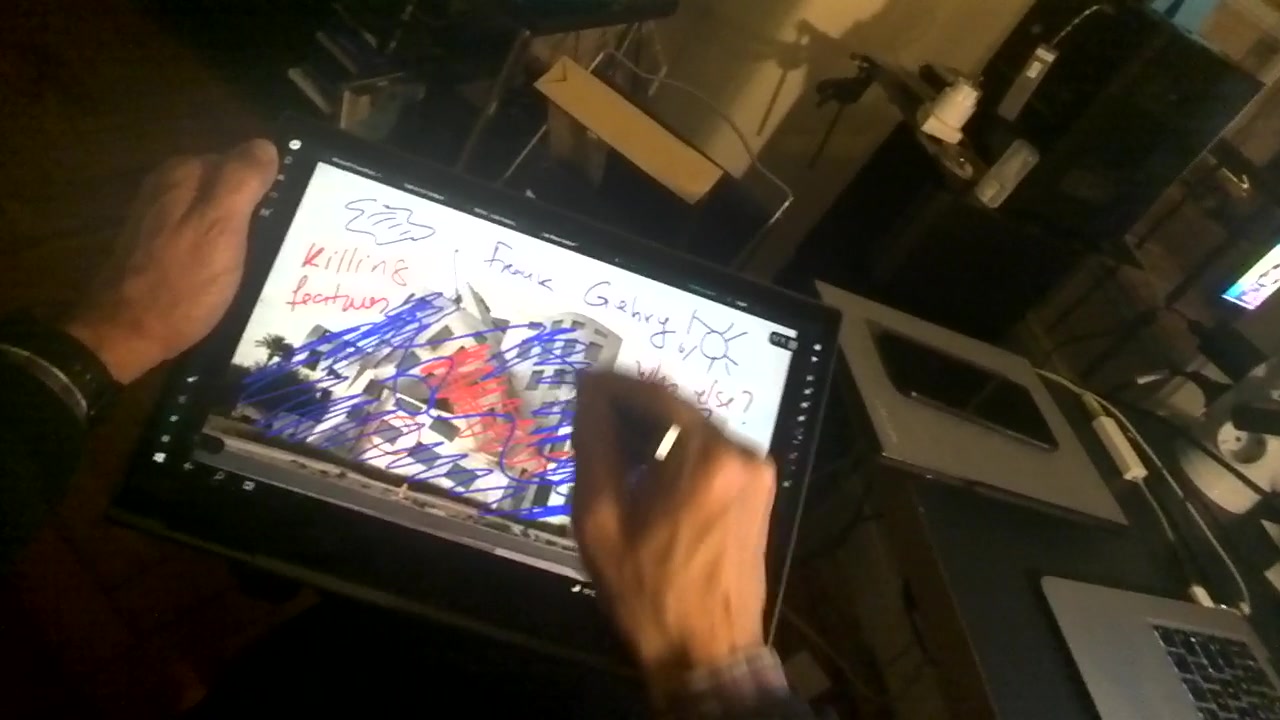 Killing
features
Frank
Gehry
who else?